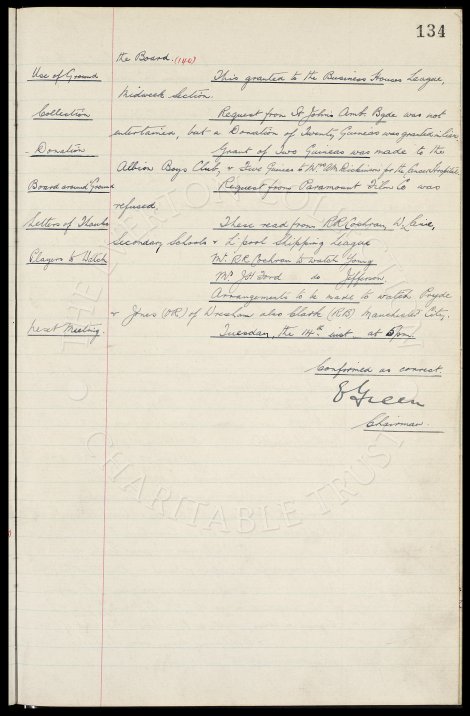 134
the Board. (146)
Use of Ground This granted to the Business Houses League,
Midweek Section.
Collection Request from St John's Amb. Bgde was not
entertained, but a Donation of Twenty Guineas was granted in lieu.
Donation Grant of Two Guineas was made to the
Albion Boys Club, & Five Guineas to for the Cancer Hospital.
Board around Ground Request from Paramount Film Co was
refused.
Letters of Thanks These read from R.R. Cochran,
Secondary Schools & L'pool Shipping League
Players to Watch Mr R.R. Cochran to watch Young
Mr J.H. Ford do Jefferson
Arrangements to be made to watch Pryde
& Jones (OR) of Wrexham also Clark (RB) Manchester City.
Next Meeting. Tuesday, the 14th inst. at 5pm
Confirmed as correct.
E Green
Chairman.
THE EVERTON COLLECTION
CHARITABLE TRUST